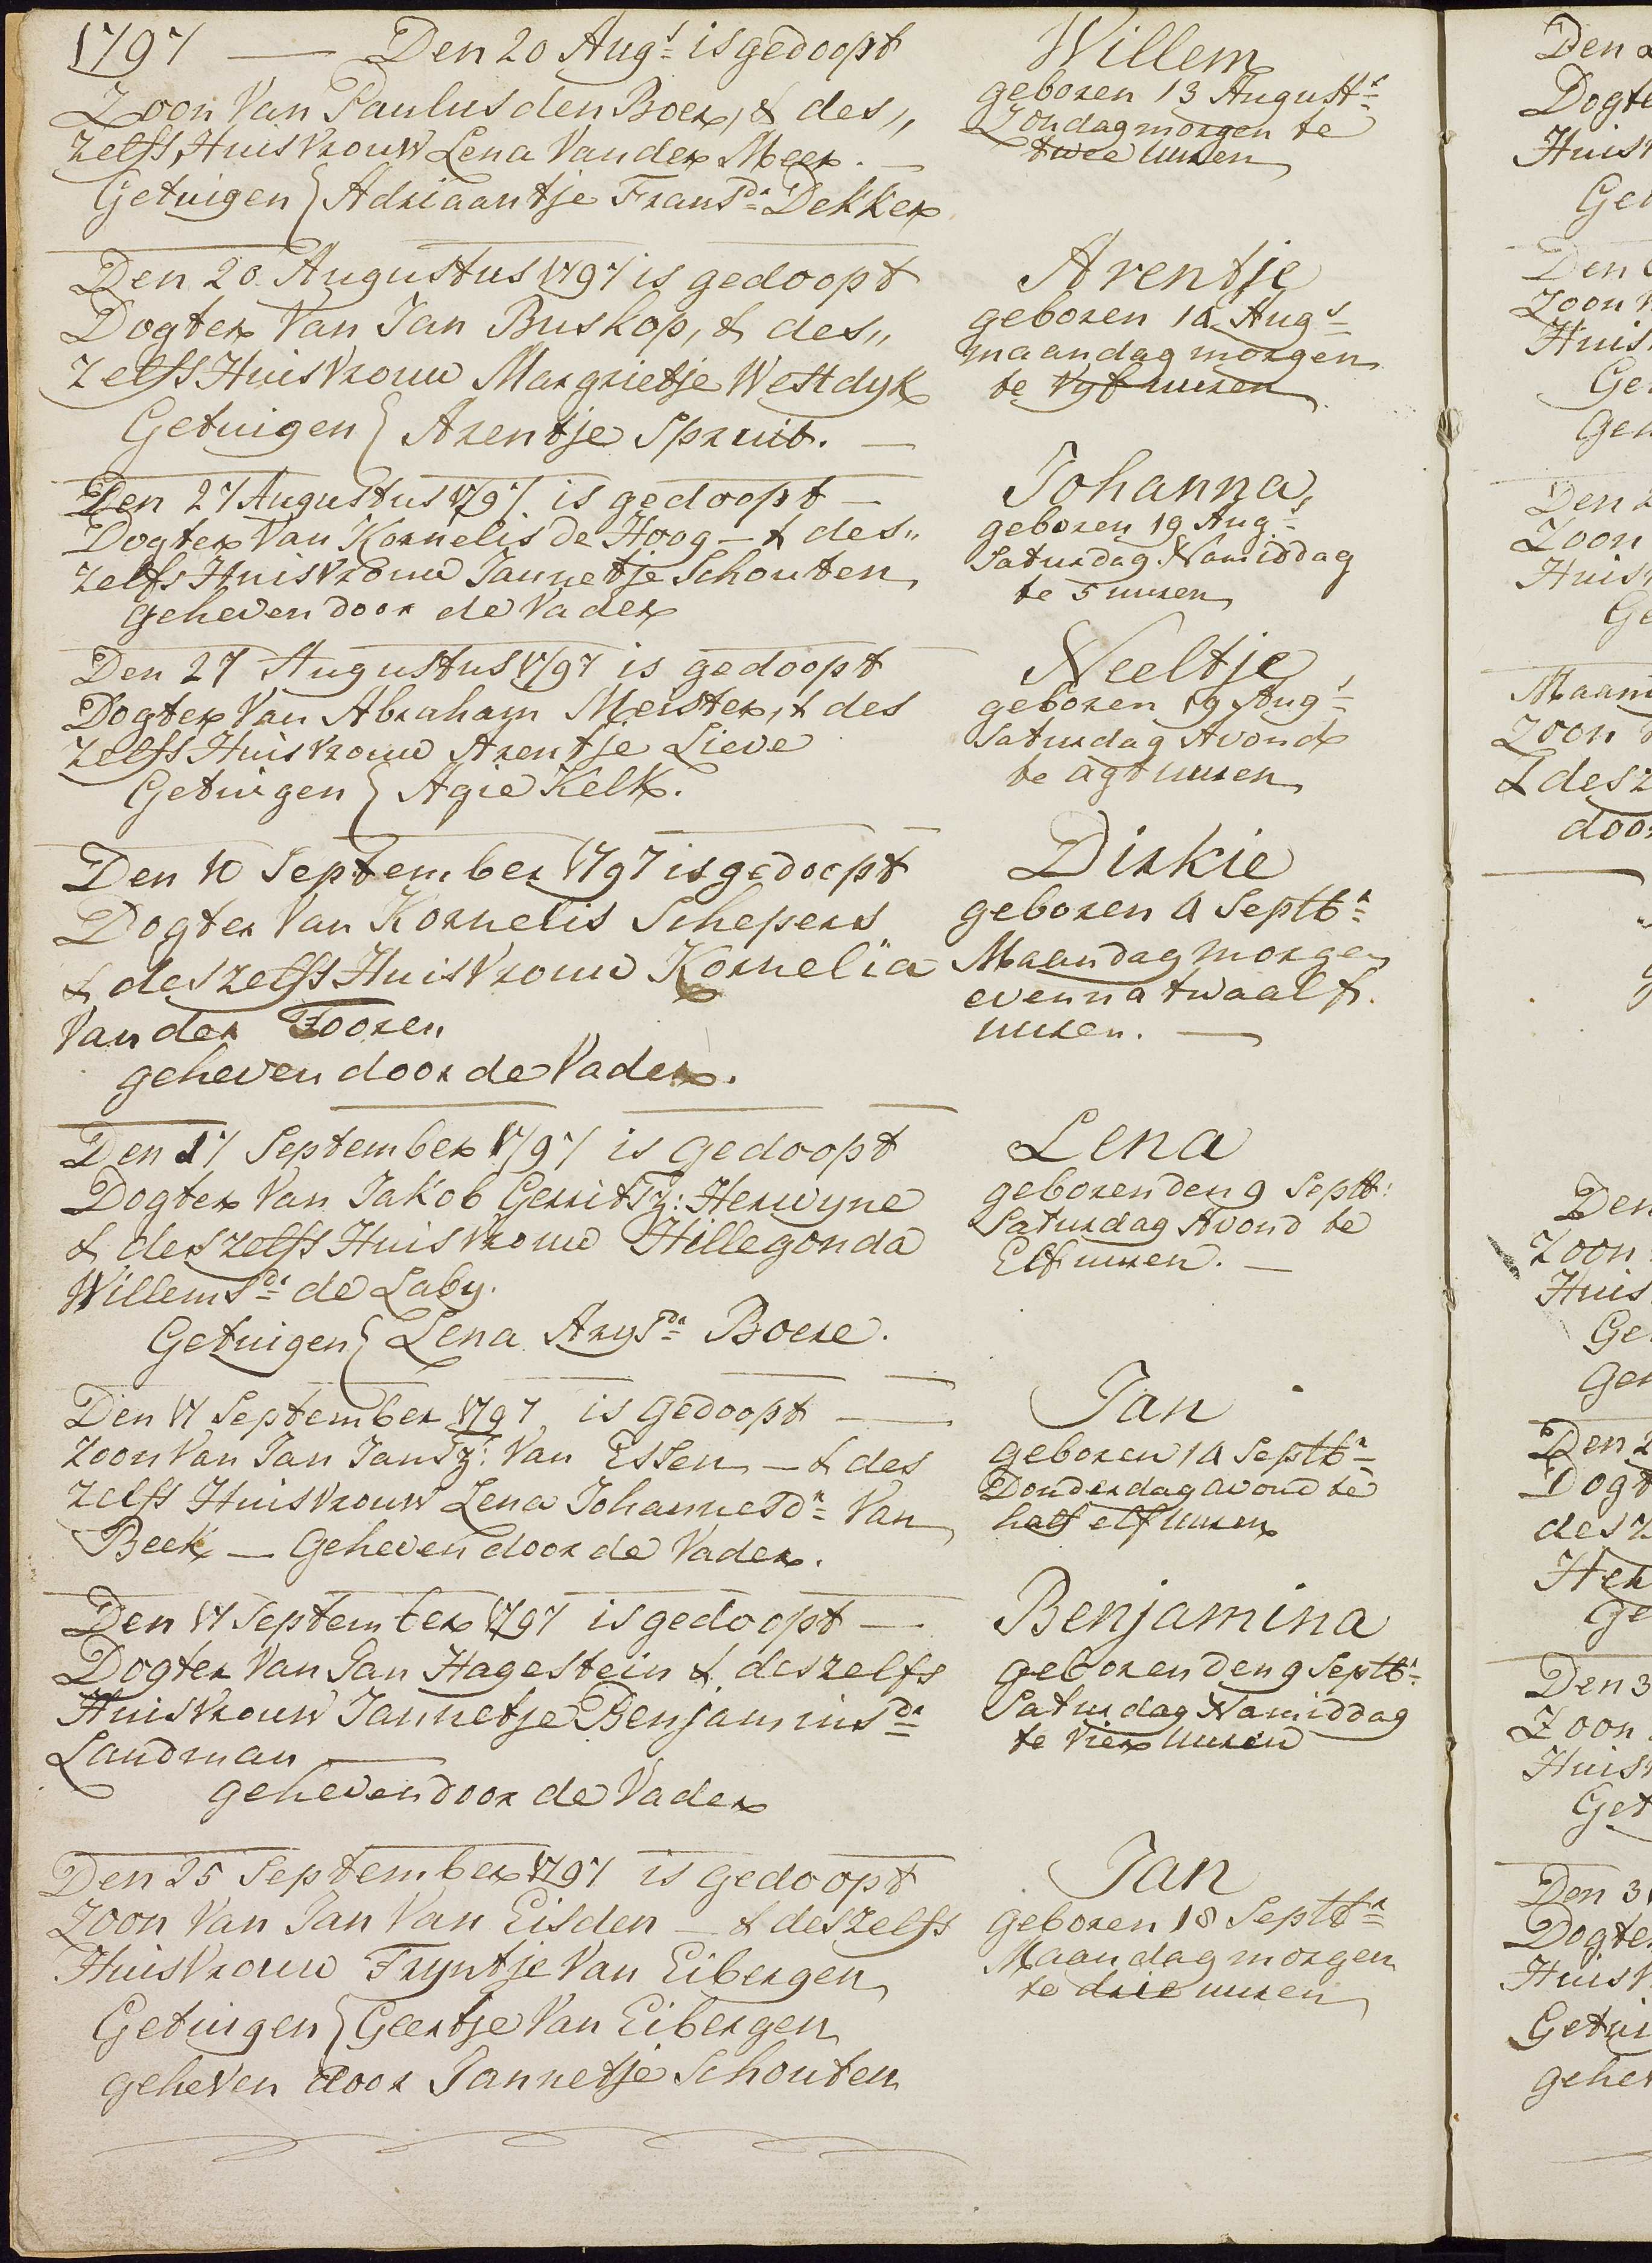 1797 — Den 20 Augs is gedoopt
Zoon Van Paulus den Boer, & des„
zelfs Huisvrouw Lena Van der Meer. —
Getuigen { Adriaantje Fransdr Dekker
Willem
geboren 13 Augustus
Zondagmorgen te
twee uuren
Den 20 Augustus 1797 is gedoopt
Dogter Van Jan Buskop, & des„
zelfs Huisvrouw Margrietje Westdyk
Getuigen { Arentje Spruit. —
Arentje
geboren 14 Augs
maandag morgen
te vyf uuren
Den 27 Augustus 1797 is gedoopt —
Dogter Van Kornelis de Hoog — & des„
zelfs Huisvrouw Jannetje Schouten
geheven door de Vader
Johanna
geboren 19 Augs
Saturdag Namiddag
te 5 uuren
Den 27 Augustus 1797 is gedoopt —
Dogter Van Abraham Meister, & des
zelfs Huisvrouw Arentje Lieve
Getuigen { Agie Kelk.
Neeltje
geboren 19 Augs
Saturdag Avond
te agt uuren
Den 10 September 1797 is gedoopt
Dogter Van Kornelis Schepers
& deszelfs Huisvrouw Kornelia
Van der Tooren
geheven door de Vader.
Dirkie
geboren 4 Septbr
Maandag morgen
even na twaalf
uuren. —
Den 17 September 1797 is gedoopt
Dogter Van Jakob Gerritsz: Herwyne
& deszelfs Huisvrouw Hillegonda
Willemsdr de Laby.
Getuigen { Lena Arysdr Boere.
Lena
geboren den 9 Septb:
Saturdag Avond te
Elf uuren. —
Den 17 September 1797 is gedoopt —
Zoon Van Jan Jansz: Van Essen — & des
zelfs Huisvrouw Lena Johannesdr Van
Beek — Geheven door de Vader.
Jan
geboren 14 Septbr
Donderdag avond te
half elf uuren
Den 17 September 1797 is gedoopt —
Dogter Van Jan Hagestein & deszelfs
Huisvrouw Jannetje Benjaminsdr
Landman
geheven door de Vader
Benjamina
geboren den 9 Septbr
Saturdag Namiddag
te vier uuren
Den 25 September 1797 is gedoopt
Zoon Van Jan Van Eisden — & deszelfs
Huisvrouw Fryntje Van Eibergen
Getuigen { Geertje Van Eibergen
geheven door Jannetje Schouten
Jan
geboren 18 Septbr
Maandag morgen
te drie uuren
Den
Dogte
Huisv
Get
Den
Zoon
Huis
Ge
Den
Zoon
Huis
Ge
Maan
Zoon
& desz
door
Den
Zoon
Huis
Ge
Den 2
Dogt
desz
Her
ge
Den 3
Zoon
Huisv
Get
Den 3
Dogte
Huisv
Getui
gehev